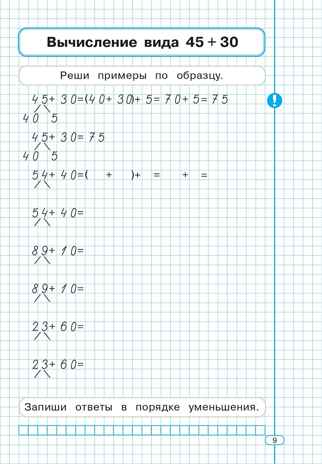 Вычисление вида 45 + 30
Реши примеры по образцу.
45 + 30 = (40 + 30) + 5 = 70 + 5 = 75
40 5
45 + 30 = 75
40 5
54 + 40 = ( + ) + = + =
54 + 40 =
89 + 10 =
89 + 10 =
23 + 60 =
23 + 60 =
Запиши ответы в порядке уменьшения.
9